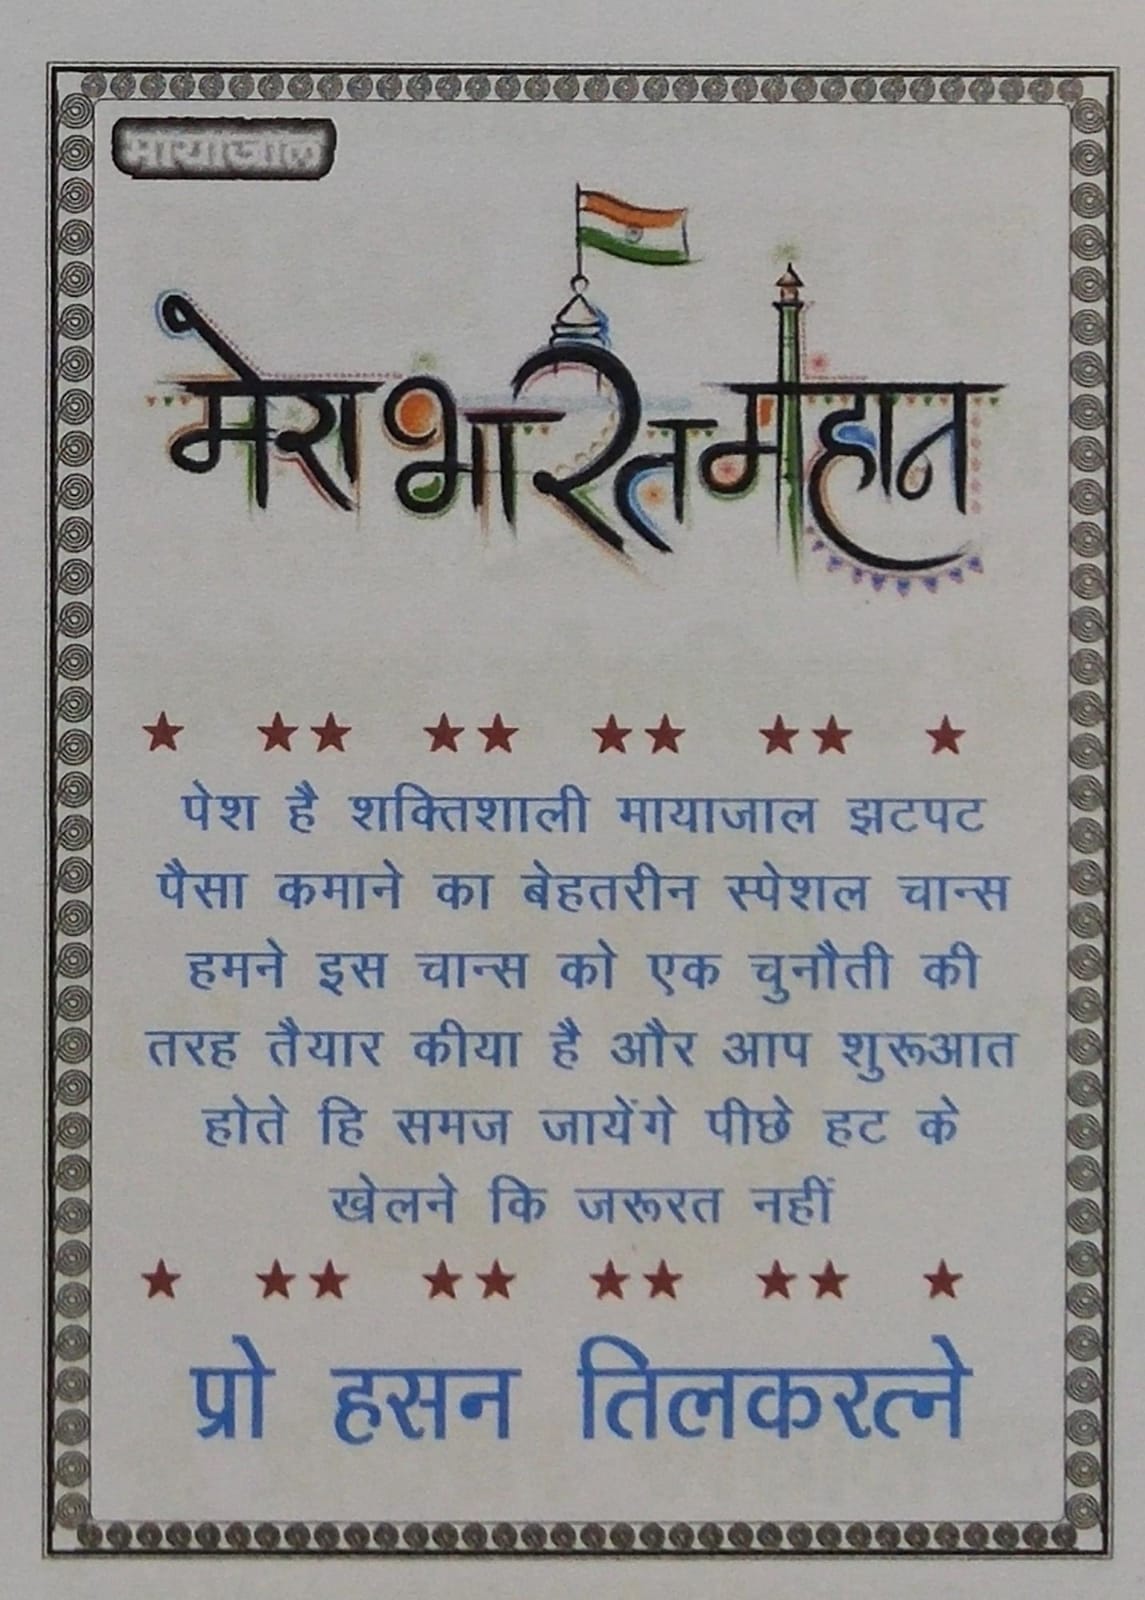 मायाजाल
मेरा भारत महान
पेश है शक्तिशाली मायाजाल झटपट
पैसा कमाने का बेहतरीन स्पेशल चान्स
हमने इस चान्स को एक चुनौती की
तरह तैयार कीया है और आप शुरूआत
होते हि समज जायेंगे पीछे हट के
खेलने कि जरूरत नहीं
प्रो हसन तिलकरत्ने